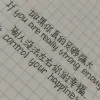 如果你真的足够强大
If you are really strong enough,
别人无法左右你的幸福
control your happiness